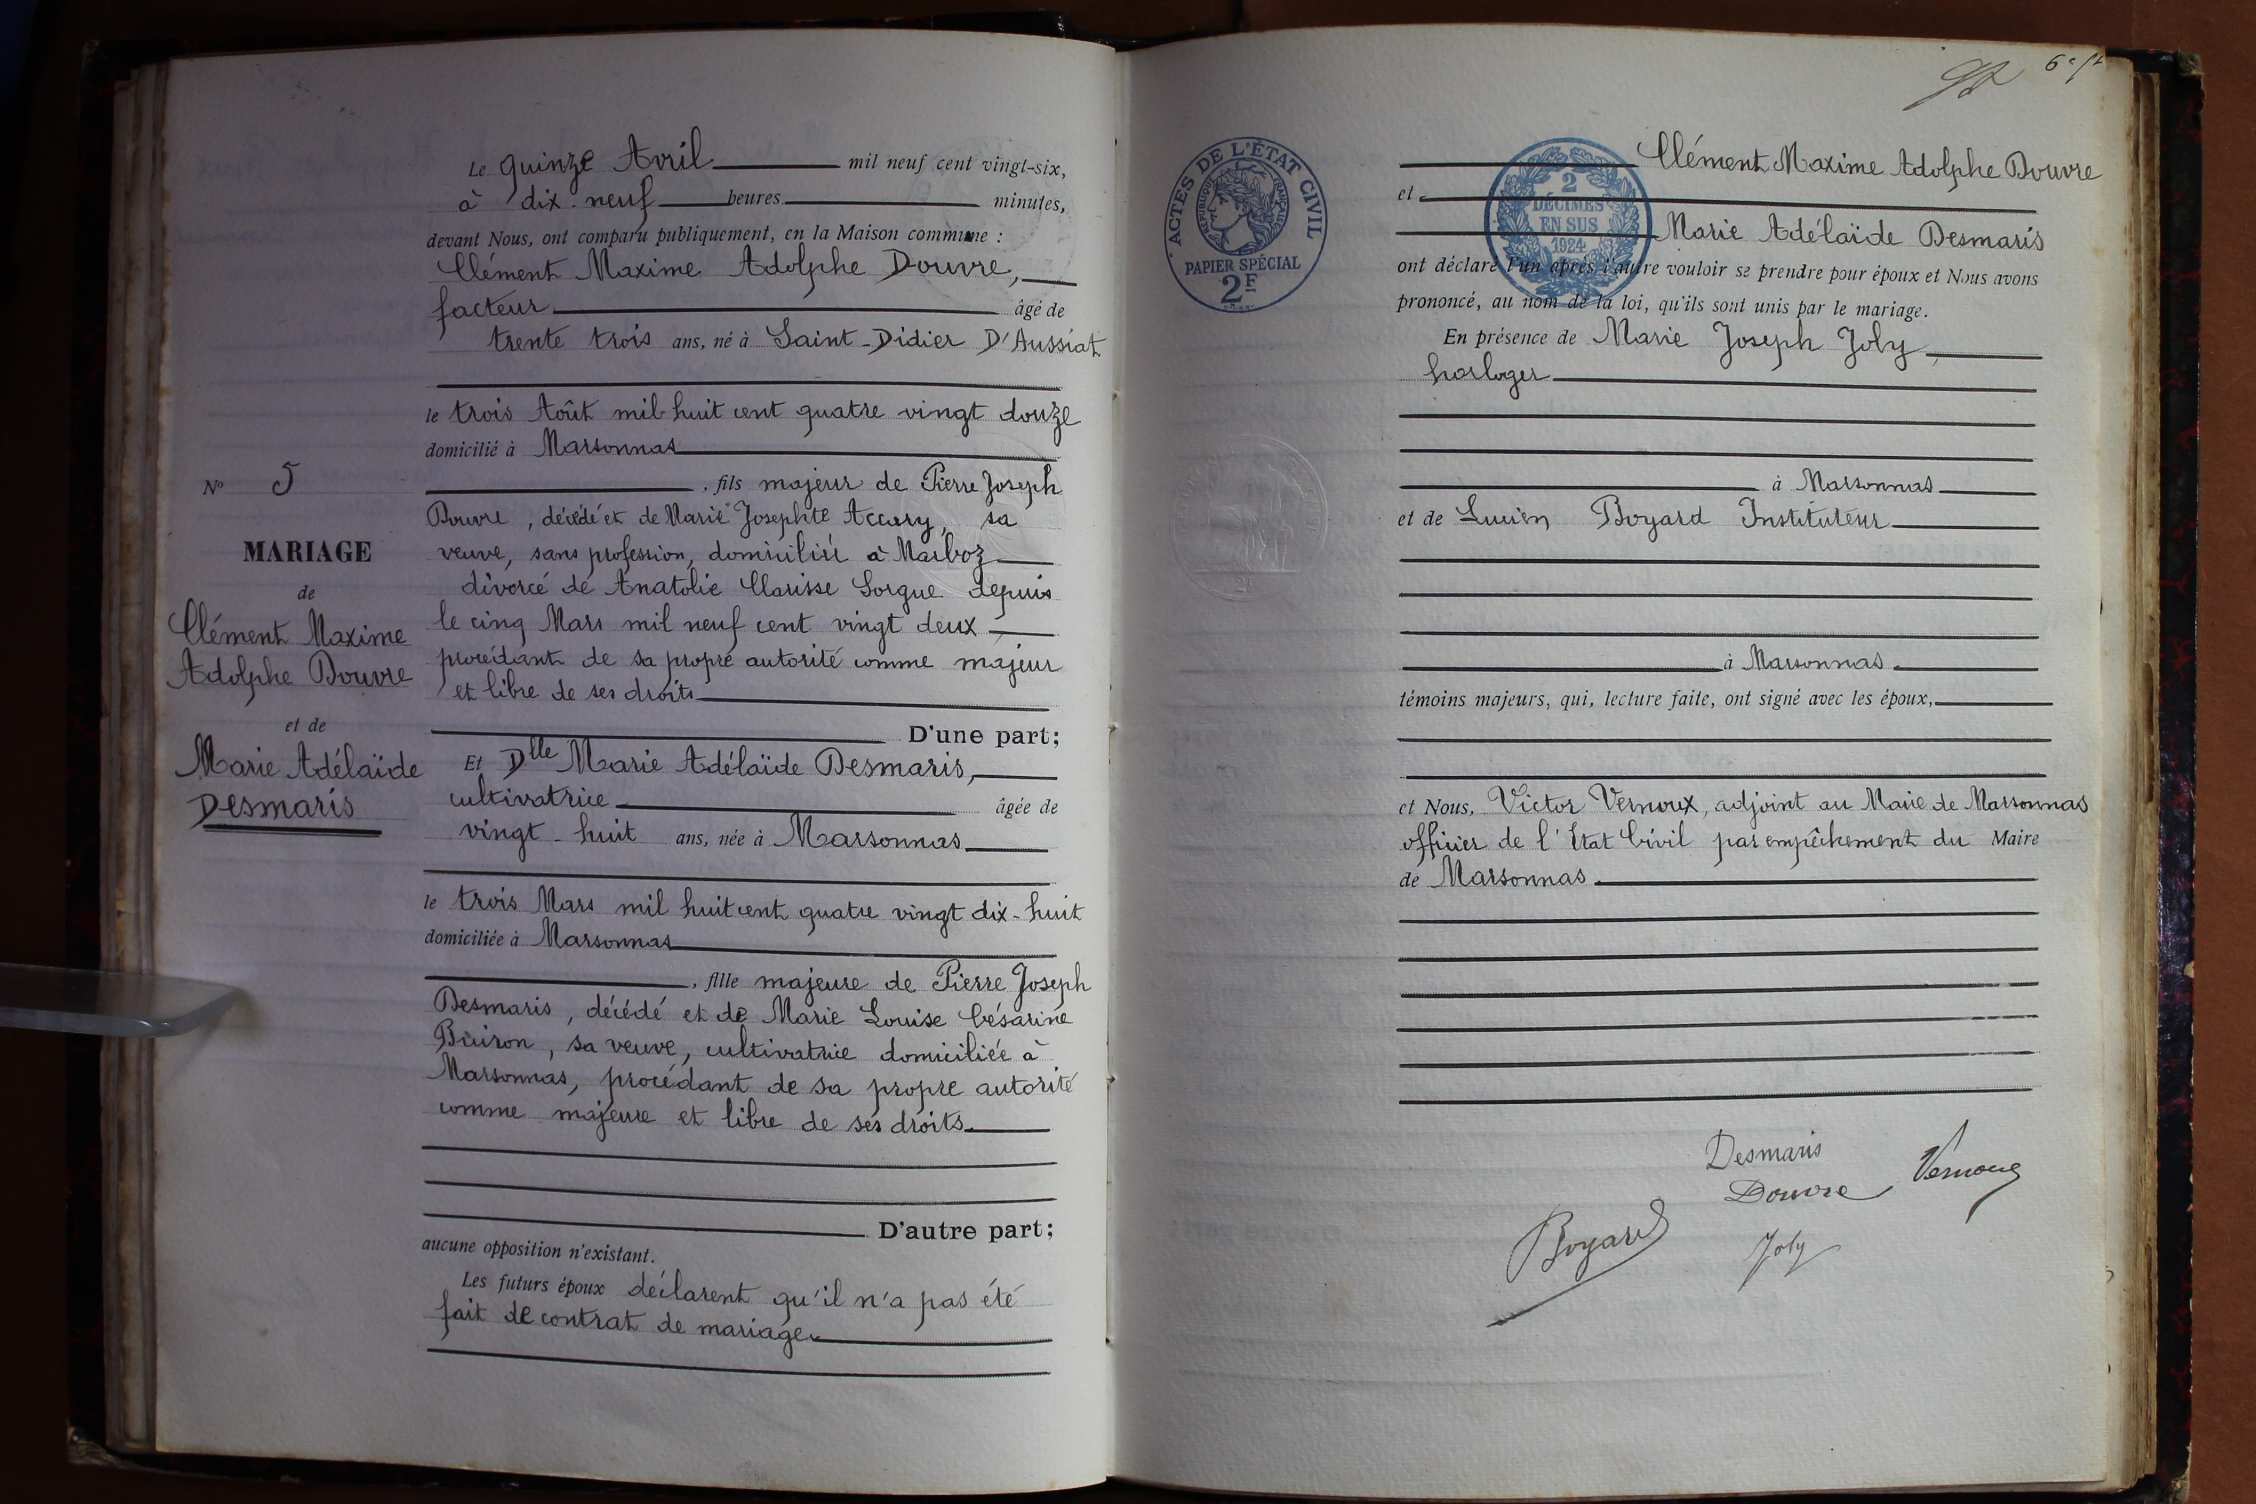 Le quinze Avril mil neuf cent vingt-six,
à dix-neuf heures minutes,
devant Nous, ont comparu publiquement, en la Maison commune :
Clément Maxime Adolphe Douvre,
facteur âgé de
trente trois ans, né à Saint-Didier D'Aussiat
le trois Août mil huit cent quatre vingt douze
domicilié à Marsonnas
, fils majeur de Pierre Joseph
Douvre, décédé et de Marie Josephte Accary, sa
veuve, sans profession, domiciliée à Marboz
divorcé de Anatolie Clarisse Sorgue depuis
le cinq Mars mil neuf cent vingt deux,
procédant de sa propre autorité comme majeur
et libre de ses droits
D'une part;
Et Dlle Marie Adélaïde Desmaris,
cultivatrice âgée de
vingt-huit ans, née à Marsonnas
le trois Mars mil huit cent quatre vingt dix-huit
domiciliée à Marsonnas
, fille majeure de Pierre Joseph
Desmaris, décédé et de Marie Louise Césarine
Buiron, sa veuve, cultivatrice domiciliée à
Marsonnas, procédant de sa propre autorité
comme majeure et libre de ses droits
D'autre part;
aucune opposition n'existant.
Les futurs époux déclarent qu'il n'a pas été
fait de contrat de mariage
No 5
MARIAGE
de
Clément Maxime
Adolphe Douvre
et de
Marie Adélaïde
Desmaris
ACTES DE L'ÉTAT CIVIL
RÉPUBLIQUE FRANÇAISE
PAPIER SPÉCIAL
2F
2
DÉCIMES
EN SUS
1924
Clément Maxime Adolphe Douvre
et
Marie Adélaïde Desmaris
ont déclaré l'un après l'autre vouloir se prendre pour époux et Nous avons
prononcé, au nom de la loi, qu'ils sont unis par le mariage.
En présence de Marie Joseph Joly,
horloger
à Marsonnas
et de Lucien Boyard Instituteur
à Marsonnas
témoins majeurs, qui, lecture faite, ont signé avec les époux,
et Nous, Victor Vernoux, adjoint au Maire de Marsonnas
officier de l'Etat Civil par empêchement du Maire
de Marsonnas
Desmaris
Douvre
Vernoux
Boyard
Joly